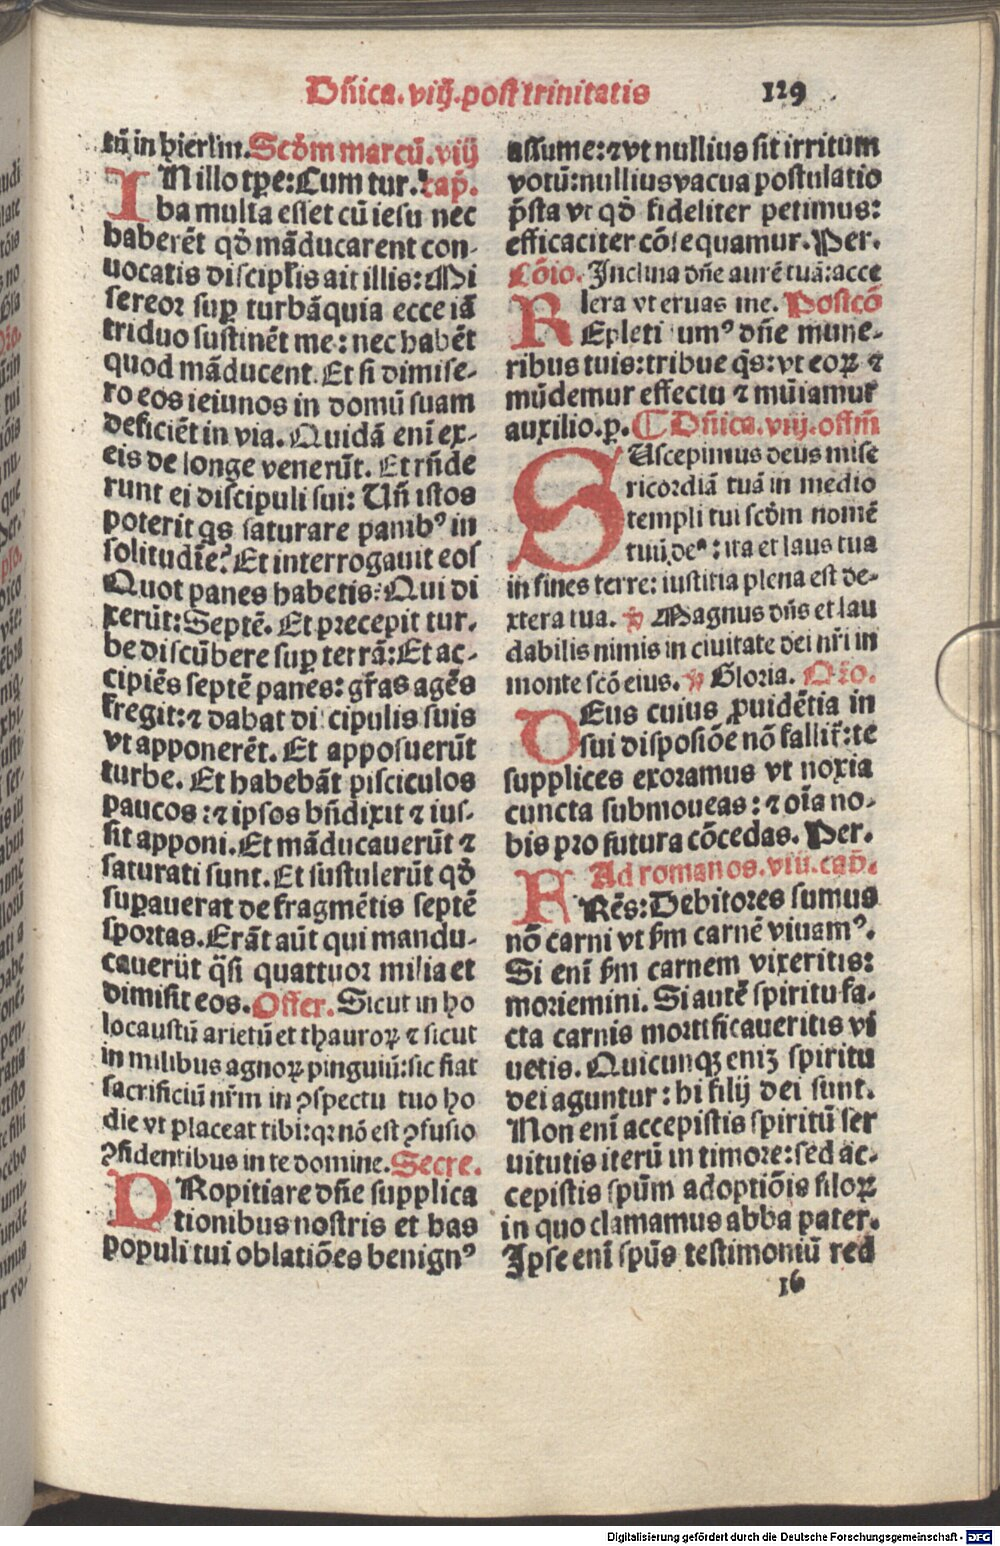 Dñica. viij. post trinitatis 129
tũ in hierlm. Scðm marcũ. viij
IN illo tꝑe: Cum tur. cap̃.
ba multa esset cũ iesu nec
haberẽt qð mãducarent con-
uocatis discipłis ait illis: Mi
sereor suꝑ turbã quia ecce iã
triduo sustinẽt me: nec habẽt
quod mãducent. Et si dimise-
ro eos ieiunos in domũ suam
deficiẽt in via. Quidã enĩ ex-
eis de longe venerũt. Et rñde
runt ei discipuli sui: Vñ istos
poterit qs saturare panibꝰ in
solitudĩe? Et interrogauit eos
Quot panes habetis: Qui di
xerũt: Septẽ. Et precepit tur.
be discũbere suꝑ terrã: Et ac-
cipiẽs septẽ panes: gr̃as agẽs
fregit: ⁊ dabat discipulis suis
vt apponerẽt. Et apposuerũt
turbe. Et habebãt pisciculos
paucos: ⁊ ipsos bñdixit ⁊ ius-
sit apponi. Et mãducauerũt ⁊
saturati sunt. Et sustulerũt qð
suꝑauerat de fragmẽtis septẽ
sportas. Erãt aũt qui mandu-
cauerũt q̃si quattuor milia et
dimisit eos. Offer. Sicut in ho
locaustũ arietũ et thauroꝝ ⁊ sicut
in milibus agnoꝝ pinguiũ: sic fiat
sacrificiũ nr̃m in ꝯspectu tuo ho
die vt placeat tibi: qꝛ nõ est ꝯfusio
ꝯfidentibus in te domine. Secre.
PRopitiare dñe supplica
tionibus nostris et has
populi tui oblatiões benignꝰ
assume: ⁊ vt nullius sit irritum
votũ: nullius vacua postulatio
p̃sta vt qð fideliter petimus:
efficaciter cõsequamur. Per.
Cõio. Inclina dñe aurẽ tuã: acce
lera vt eruas me. Postcõ
REpleti sumꝰ dñe mune-
ribus tuis: tribue q̃s: vt eoꝝ ⁊
mũdemur effectu ⁊ mũiamur
auxilio. p. ¶ Dñica. viij. offm̃
SUscepimus deus mise
ricordiã tuã in medio
templi tui scðm nomẽ
tuũ de⁹: ita et laus tua
in fines terre: iustitia plena est de-
xtera tua. ꝟ Magnus dñs et lau
dabilis nimis in ciuitate dei nr̃i in
monte scõ eius. ꝟ Gloria. Oĩo.
DEus cuius ꝓuidẽtia in
sui disposiõe nõ fallit̃: te
supplices exoramus vt noxia
cuncta submoueas: ⁊ oĩa no-
bis pro futura cõcedas. Per.
Ad romanos. viij. cap̃.
FRẽs: Debitores sumus
nõ carni vt ẜm carnẽ viuamꝰ.
Si enĩ ẜm carnem vixeritis:
moriemini. Si autẽ spiritu fa-
cta carnis mortificaueritis vi
uetis. Quicunqꝫ enĩ spiritu
dei aguntur: hi filij dei sunt.
Non enĩ accepistis spiritũ ser
uitutis iterũ in timore: sed ac-
cepistis spũm adoptiõis filoꝝ
in quo clamamus abba pater.
Ipse enĩ spũs testimoniũ red
16
Digitalisierung gefördert durch die Deutsche Forschungsgemeinschaft - DFG